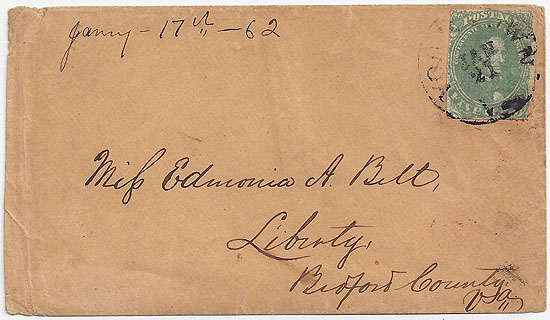 Janny - 17th - 62
POSTAGE
JAN
21
FIVE
Miss Edmonia A. Belt,
Liberty,
Bedford County,
Va,,